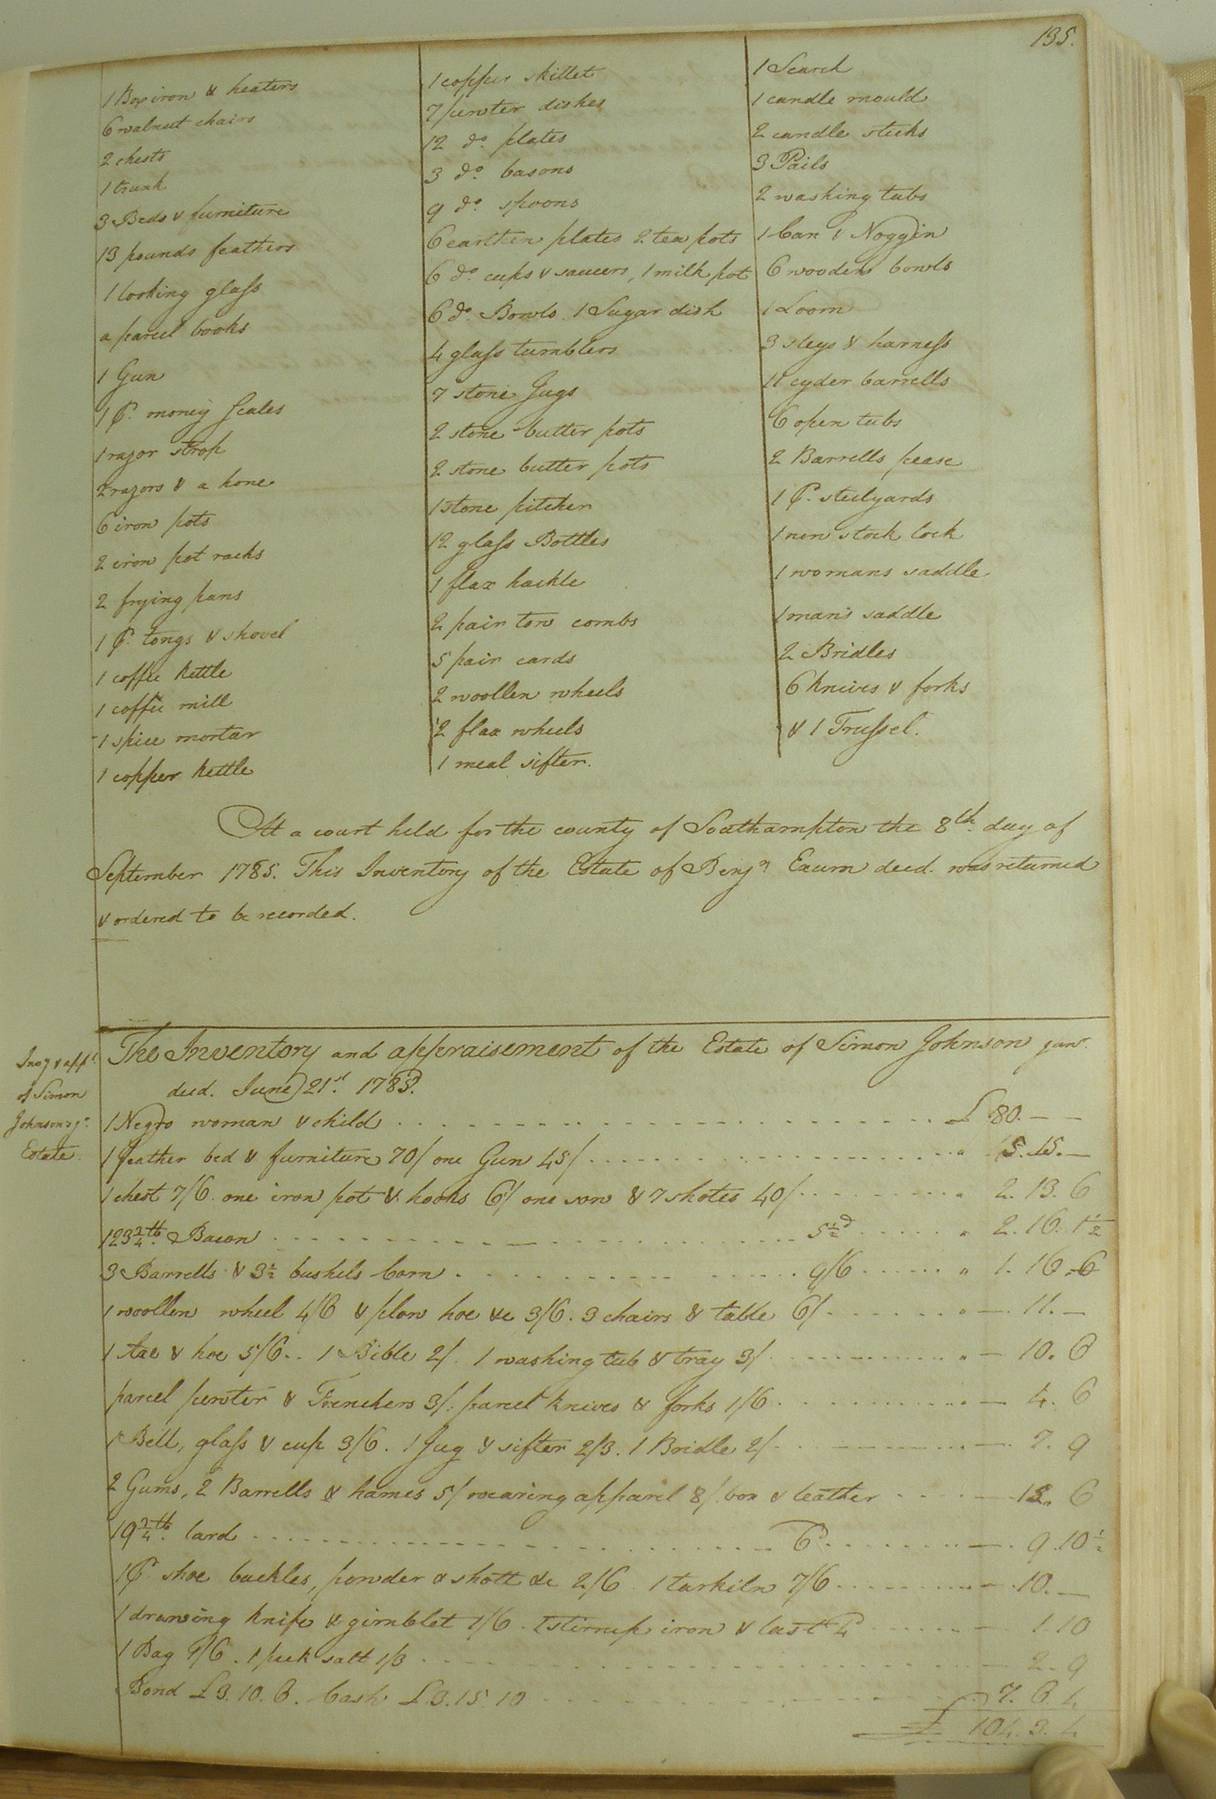 135.
1 Box iron & heaters
6 walnut chairs
2 chests
1 trunk
3 Beds & furniture
13 pounds feathers
1 looking glass
a parcel books
1 Gun
1 Pr. money Scales
1 razor strop
2 razors & a hone
6 iron pots
2 iron pot racks
2 frying pans
1 Pr. tongs & shovel
1 coffee kettle
1 coffee mill
1 spice mortar
1 copper kettle
1 copper skillet
7 pewter dishes
12 do. plates
3 do. basons
9 do. spoons
6 earthen plates 2 tea pots
6 do. cups & saucers, 1 milk pot
6 do. Bowls 1 Sugar dish
4 glass tumblers
7 stone Jugs
2 stone butter pots
2 stone butter pots
1 stone pitcher
12 glass Bottles
1 flax hackle
2 pair tow combs
5 pair cards
2 woollen wheels
2 flax wheels
1 meal sifter.
1 Search
1 candle mould
2 candle sticks
3 Pails
2 washing tubs
1 Can 1 Noggin
6 wooden bowls
1 Loom
3 sleys & harness
11 cyder barrells
6 open tubs
2 Barrells pease
1 Pr. steelyards
1 new stock lock
1 womans saddle
1 man's saddle
2 Bridles
6 knives & forks
& 1 Trussel.
At a court held for the county of Southampton the 8th. day of
September 1785. This Inventory of the Estate of Benjn. Exum decd. was returned
& ordered to be recorded.
Invy & appt.
of Simon
Johnson jr.
Estate.
The Inventory and appraisement of the Estate of Simon Johnson junr.
decd. June 21st. 1785.
1 Negro woman & child £ 80. — —
1 feather bed & furniture 70/ one Gun 45/ " 5. 15. —
1 chest 7/6. one iron pot & hooks 6/ one sow & 7 shotes 40/ " 2. 13. 6
123 3/4 lb. Bacon 5 1/2 d " 2. 16. 1 1/2
3 Barrells & 3 1/2 bushels Corn 9/6 " 1. 16. 6
1 woollen wheel 4/6 & plow hoe &c 3/6. 3 chairs & table 6/ " — 11. —
1 Axe & hoe 5/6. 1 Bible 2/. 1 washing tub & tray 3/ " — 10. 6
parcel pewter & Trenchers 3/. parcel knives & forks 1/6 — 4. 6
1 Bell, glass & cup 3/6. 1 Jug & sifter 2/3. 1 Bridle 2/ — 7. 9
2 Gums, 2 Barrells & hames 5/ wearing apparel 8/. box & leather — 6
19 3/4 lb. lard 6d — 9. 10 1/2
1 Pr shoe buckles, powder & shott &c 2/6. 1 tarkiln 7/6 — 10. —
1 drawing knife & gimblet 1/6. 1 stirrup iron & last 4d — 1. 10
1 Bag 1/6. 1 peck salt 1/3 — 2. 9
Bond £3. 10. 6. Cash £3. 15. 10 7. 6. 4
£ 104. 3. 4